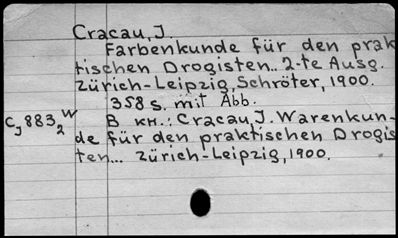 Cracau, J.
Farbenkunde für den prak
tischen Drogisten.. 2-te Ausg.
Zürich-Leipzig, Schröter, 1900.
358 s. mit Abb.
В кн.: Cracau, J. Warenkun-
de für den praktischen Drogis
ten... Zürich-Leipzig, 1900.